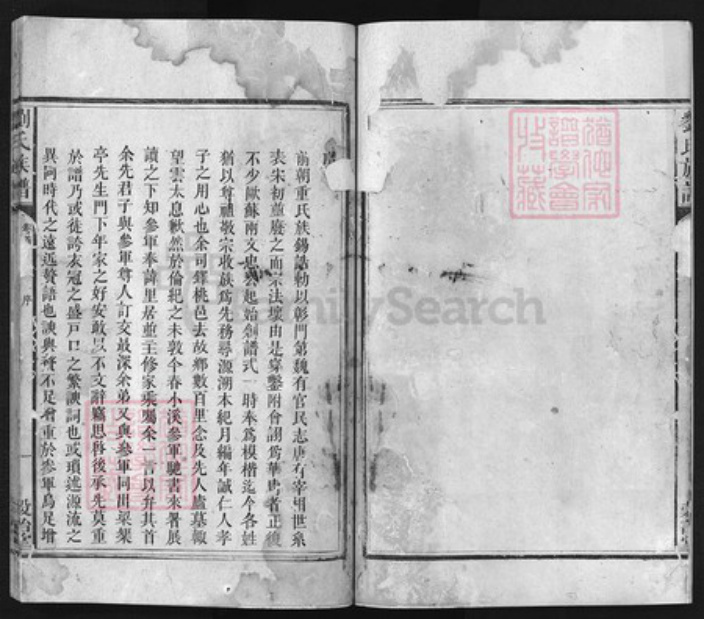 劉氏族譜
前朝重氏族錫誥勅以彰門第魏有官民志唐有宰相世系
表宋初並廢之而宗法壞由是穿鑿附會謝為華胄者正復
不少歐蘇兩文忠公起始創譜式一時奉為模楷迄今各姓
猶以尊祖敬宗收族為先務尋源溯本紀月編年誠仁人孝
子之用心也余司鐸桃邑去故鄉數百里念及先人廬墓輒
望雲太息歉然於倫紀之未敦今春小溪參軍馳書來署展
讀之下知參軍奉諱里居並主修家乘囑余一言以弁其首
余先君子與參軍尊人訂交最深余弟又與參軍同出梁榘
亭先生門下年家之好安敢以不文辭竊思啓後承先莫重
於譜乃或徒誇衣冠之盛戶口之繁諛詞也或瑣述源流之
異同時代之遠近贅語也諛與贅不足增重於參軍烏足增
劉氏族譜
序
一
敦倫堂
FamilySearch